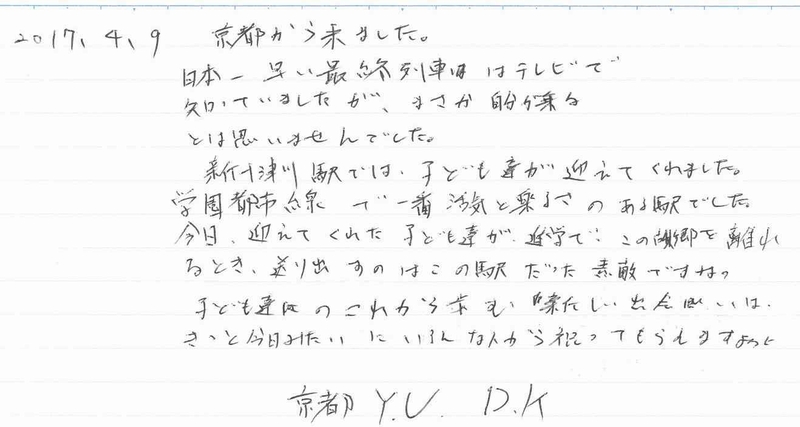 2017、4、9 京都から来ました。
日本一早い最終列車はテレビで
知っていましたが、まさか自分が乗る
とは思いませんでした。
新十津川駅では、子ども達が迎えてくれました。
学園都市線で一番活気と楽しさのある駅でした。
今日、迎えてくれた子ども達が、進学で、この故郷を離れ
るとき、送り出すのはこの駅だった素敵ですねっ
子ども達のこれから歩む新たしい出会いは、
きっと今日みたいにいろんな人から祝ってもらえますように
京都 Y.U. D.K